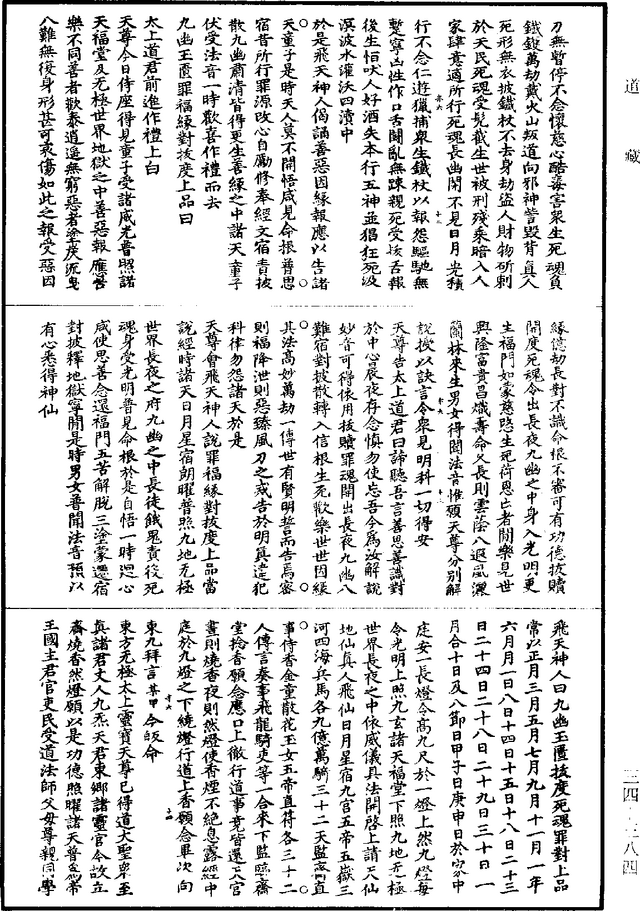 道藏
刀無暫停不念懷慈心酷毒害衆生死魂負
鐵鍑萬劫戴火山叛道向邪神訾毀背真人
死形無衣披鐵杖不去身劫盜人財物斫剌
於天民死魂受髡截生世被刑殘乘暗入人
家肆意適所行死魂長幽閉不見日月光積
行不念仁遊獵捕衆生鐵杖以報怨驅馳無
蹔寧凶性作口舌鬪亂無踈親死受拔舌報
後生恒吠人好酒失本行五神並猖狂死汲
溟波水灌沃四瀆中
於是飛天神人偈誦善惡因緣報應以告諸
天童子是時天人莫不開悟咸見命根普思
宿昔所行罪源改心自勵修奉經文宿責披
散九幽肅清皆得更生善緣之中諸天童子
伏受法音一時歡喜作禮而去
九幽玉匱罪福緣對拔度上品曰
太上道君前進作禮上白
天尊今日侍座得見童子受諸威光普照諸
天福堂及无極世界地獄之中善惡報應苦
樂不同善者歡泰逍遥無窮惡者塗炭沉曳
八難無復身形甚可哀傷如此之報受惡因
緣億劫長對不識命根不審可有功德拔贖
開度死魂令出長夜九幽之中身入光明更
生福門如蒙慈
生死荷恩亡者開樂見世
興隆富貴昌熾壽命久長則雲蔭八遐風灑
蘭林來生男女得聞法音惟願天尊分別解
說授以訣言令衆見明科一切得安
天尊告太上道君曰諦聽吾言善思善識對
於中心晨夜存念慎勿使忘吾今爲汝解說
妙音可得依用拔贖罪魂開出長夜九幽八
難宿對披散轉入信根生死歡樂世世因緣
其法高妙萬劫一傳世有賢明誓而告焉密
則福降泄則惡臻風刀之戒告於明真違犯
科律勿怨諸天於是
天尊會飛天神人說罪福緣對拔度上品當
說經時諸天日月星宿朗曜普照九地无極
世界長夜之府九幽之中長徒餓鬼責役死
魂身受光明普見命根於是自悟一時迴心
咸使思善念還福門五苦解脫三塗蒙還宿
對披釋地獄寧閑是時男女普聞法音預以
有心悉得神仙
飛天神人曰九幽玉匱拔度死魂罪對上品
常以正月三月五月七月九月十一月一年
六月月一日八日十四日十五日十八日二十三
日二十四日二十八日二十九日三十日一
月合十日及八節日甲子日庚申日於家中
庭安一長燈令高九尺於一燈上然九燈每
令光明上照九玄諸天福堂下照九地无極
世界長夜之中依威儀具法開啓上請天仙
地仙真人飛仙日月星宿九宫五帝五嶽三
河四海兵馬各九億萬騎三十二天監齋直
事侍香金童散花玉女五帝直符各三十二
人傳言奏事飛龍騎吏等一合來下監臨齋
堂捻香願念應口上徹行道事竟皆還天宫
晝則燒香夜則然燈使香煙不絶息露經中
庭於九燈之下繞燈行道上香願念畢次向
東九拜言某甲今皈命
東方无極太上靈寶天尊已得道大聖衆至
真諸君丈人九炁天君東鄉諸靈官今故立
齋燒香然燈願以是功德照曜諸天普爲帝
王國主君官吏民受道法師父母尊親同學
三四—三八四